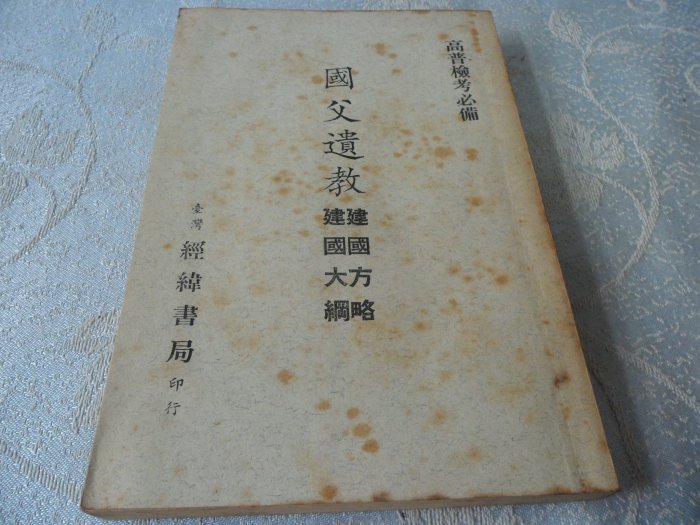 高普檢考必備
國父遺教
建國方略
建國大綱
臺灣 經緯書局 印行